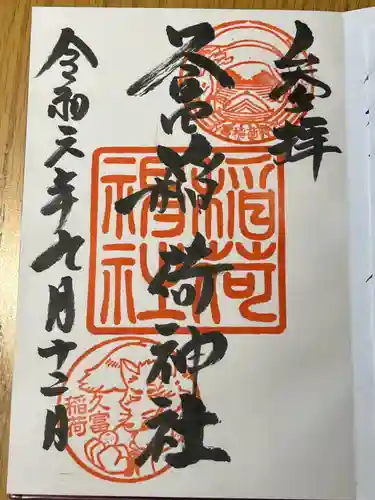 参拝
久富稲荷神社
令和元年九月十二日
稲荷
神社
久富
稲荷